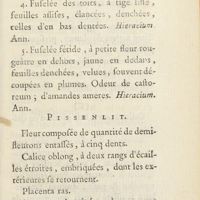 4. Fuselée des toits, à tige lisse,
feuilles assises, élancées, denchées,
celles d'en bas dentées. Hieracium
Ann.
5. Fuselée fétide, à petite fleur rou-
geâtre en dehors, jaune en dedans,
feuilles denchées, velues, souvent dé-
coupées en plumes. Odeur de casto-
reum; d'amandes ameres. Hieracium.
Ann.
PISSENLIT.
Fleur composée de quantité de demi-
fleurons entassés, à cinq dents.
Calice oblong, à deux rangs d'écail-
les étroites, embriquées, dont les ex-
térieures se retournent.
Placenta ras.